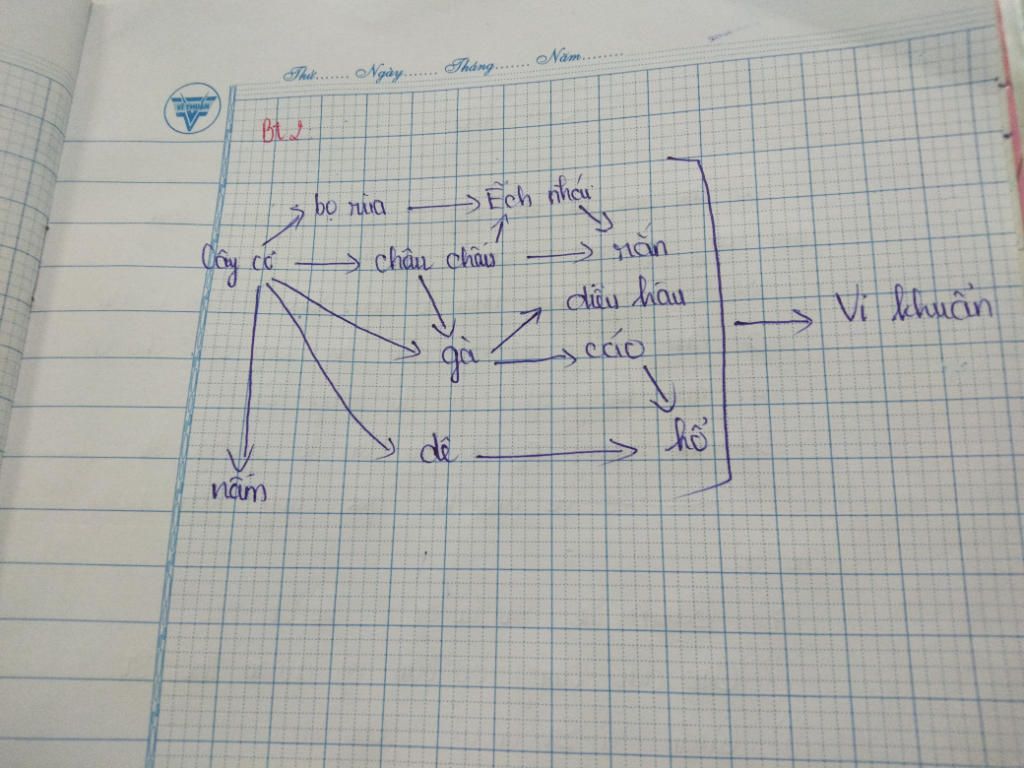 Thứ....... Ngày....... Tháng....... Năm.......
VĨ THUẤN
Bt 2
bọ rùa → Ếch nhái
Cây cỏ → châu chấu → rắn
diều hâu
Vi khuẩn
gà → cáo
dê → hổ
nấm